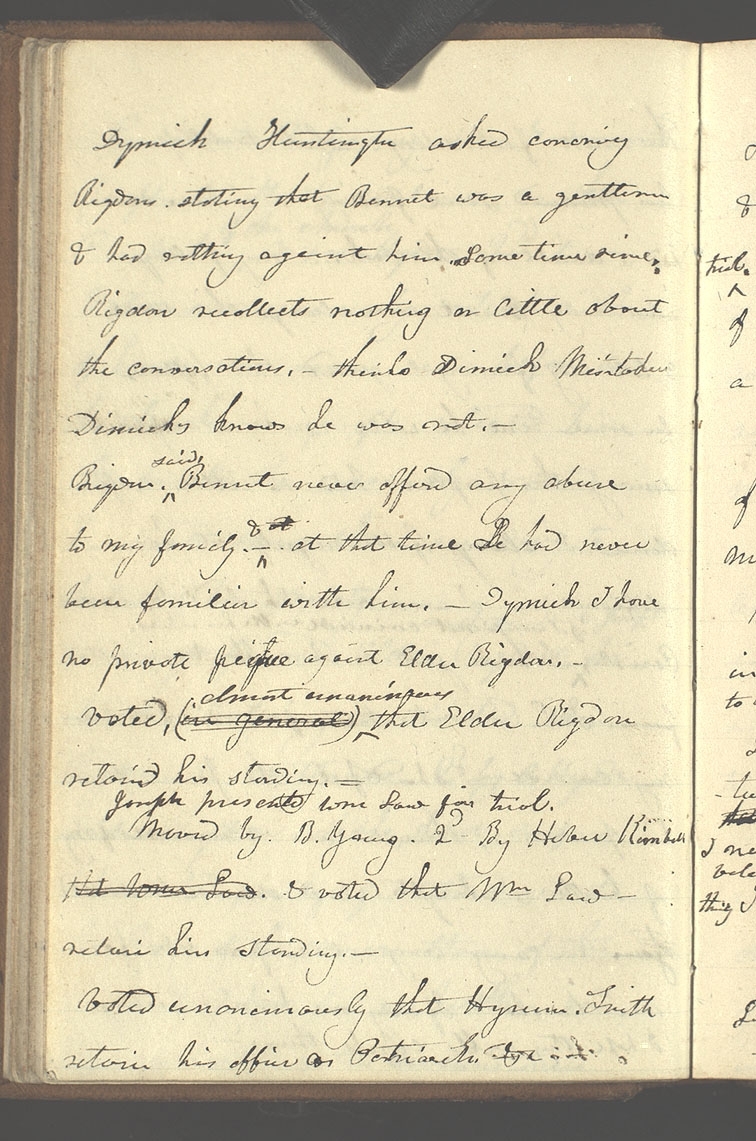 Dymick Huntington asked concning
Rigdons. stating that Bennet was a gentlemn
& had nothing against him. Some time since.
Rigdon recollects nothing or little about
the conversations. – thinks Dimick Mistaken
Dimicks knows he was not. –
said,
Rigdon. Bennet never offerd any abuse
& at
to my family. – at that time he had never
been familier with him. – Dymick I have
no private pique against Elder Rigdon. –
almost unanimous
voted, (in general) that Elder Rigdon
retaind his standing. –
Joseph presented wm Law for trial.
Moved by. B. Young. 2d By Heber Kimball
that Wm Law. & voted that Wm Law –
retain his standing. –
Voted unanimously that Hyrum. Smith
retain his office as Patriarch.
trial.
&
of
a
of
in
to
I